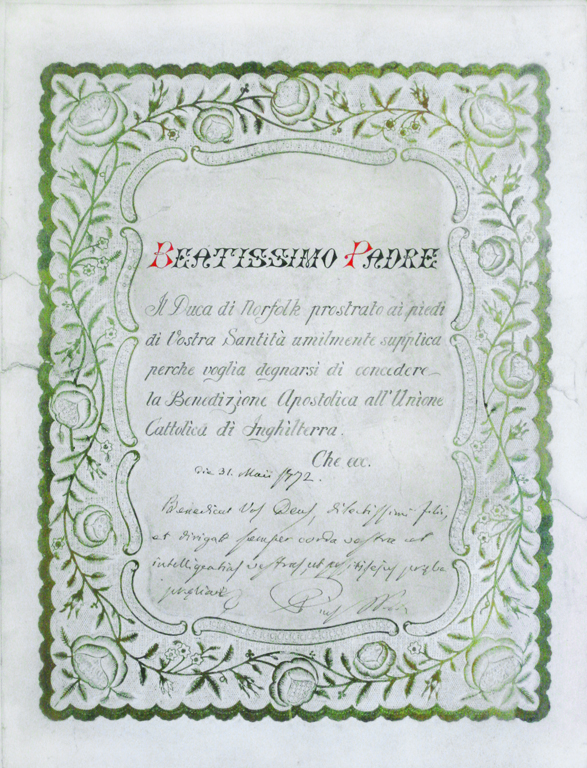 BEATISSIMO PADRE
Il Duca di Norfolk prostrato ai piedi
di Vostra Santità umilmente supplica
perche voglia degnarsi di concedere
la Benedizione Apostolica all'Unione
Cattolica di Inghilterra.
Che ecc.
die 31. Maii 1872.
Benedicat Vos Deus, dilectissimi filii,
et dirigat semper corda vestra et
intelligentias vestras